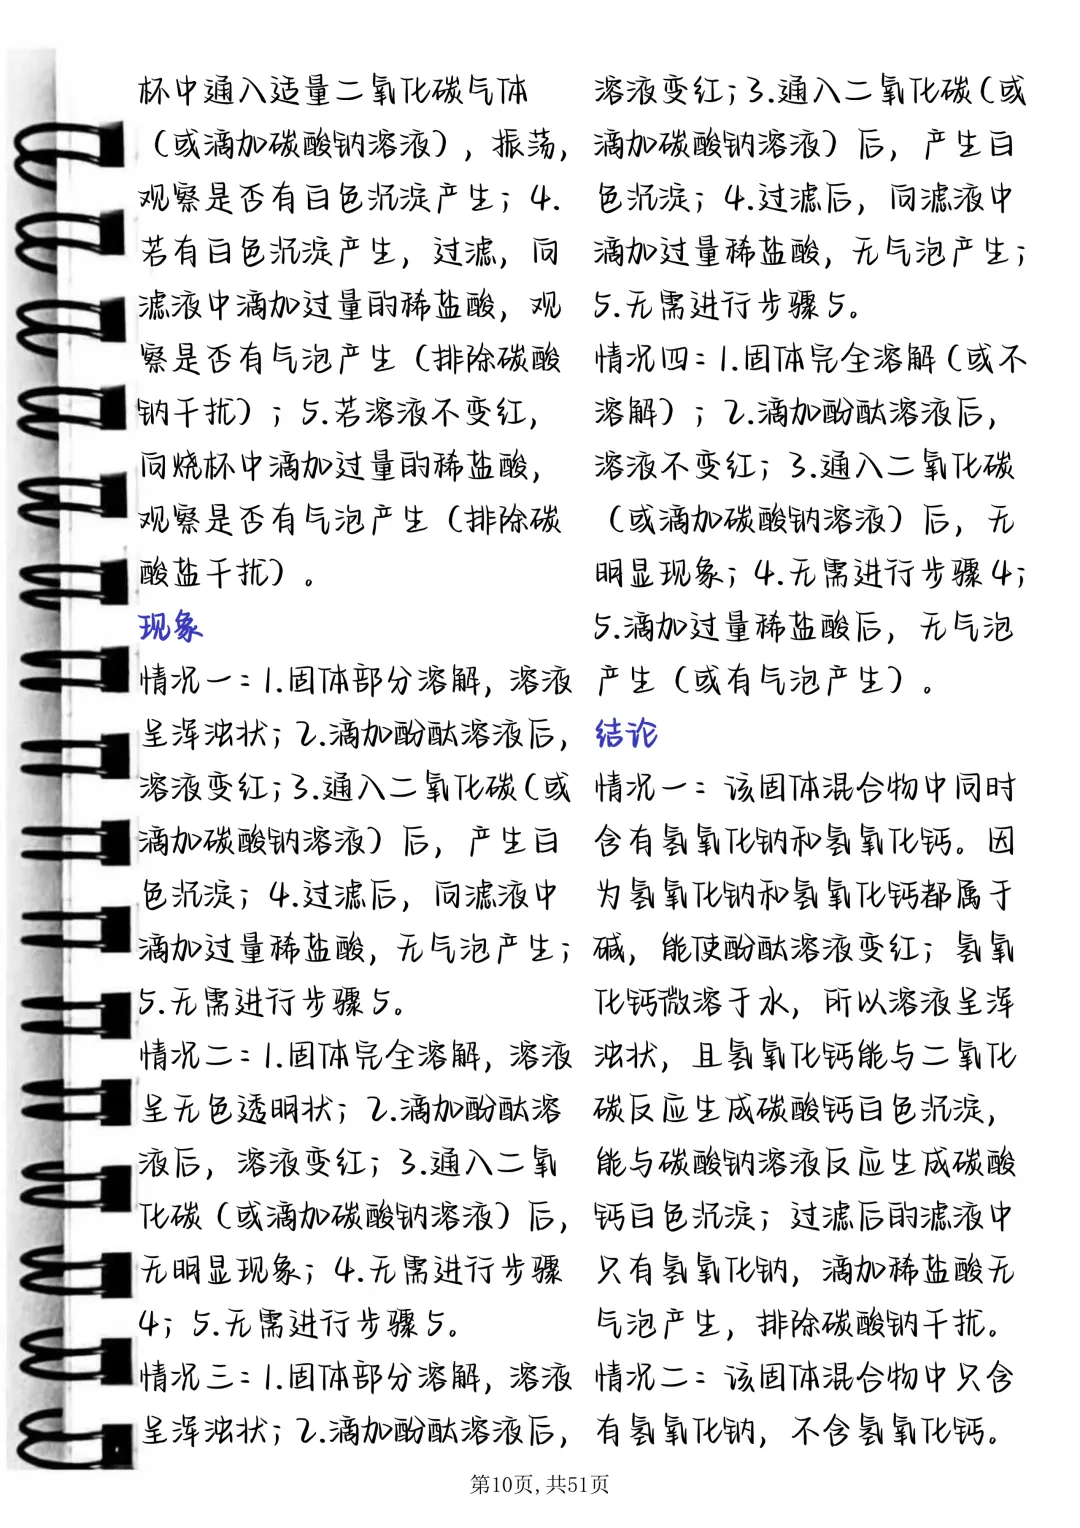 杯中通入适量二氧化碳气体
（或滴加碳酸钠溶液），振荡，
观察是否有白色沉淀产生；4.
若有白色沉淀产生，过滤，向
滤液中滴加过量的稀盐酸，观
察是否有气泡产生（排除碳酸
钠干扰）；5.若溶液不变红，
向烧杯中滴加过量的稀盐酸，
观察是否有气泡产生（排除碳
酸盐干扰）。
现象
情况一：1.固体部分溶解，溶液
呈浑浊状；2.滴加酚酞溶液后，
溶液变红；3.通入二氧化碳（或
滴加碳酸钠溶液）后，产生白
色沉淀；4.过滤后，向滤液中
滴加过量稀盐酸，无气泡产生；
5.无需进行步骤5。
情况二：1.固体完全溶解，溶液
呈无色透明状；2.滴加酚酞溶
液后，溶液变红；3.通入二氧
化碳（或滴加碳酸钠溶液）后，
无明显现象；4.无需进行步骤
4；5.无需进行步骤5。
情况三：1.固体部分溶解，溶液
呈浑浊状；2.滴加酚酞溶液后，
溶液变红；3.通入二氧化碳（或
滴加碳酸钠溶液）后，产生白
色沉淀；4.过滤后，向滤液中
滴加过量稀盐酸，无气泡产生；
5.无需进行步骤5。
情况四：1.固体完全溶解（或不
溶解）；2.滴加酚酞溶液后，
溶液不变红；3.通入二氧化碳
（或滴加碳酸钠溶液）后，无
明显现象；4.无需进行步骤4；
5.滴加过量稀盐酸后，无气泡
产生（或有气泡产生）。
结论
情况一：该固体混合物中同时
含有氢氧化钠和氢氧化钙。因
为氢氧化钠和氢氧化钙都属于
碱，能使酚酞溶液变红；氢氧
化钙微溶于水，所以溶液呈浑
浊状，且氢氧化钙能与二氧化
碳反应生成碳酸钙白色沉淀，
能与碳酸钠溶液反应生成碳酸
钙白色沉淀；过滤后的滤液中
只有氢氧化钠，滴加稀盐酸无
气泡产生，排除碳酸钠干扰。
情况二：该固体混合物中只含
有氢氧化钠，不含氢氧化钙。
第10页,共51页